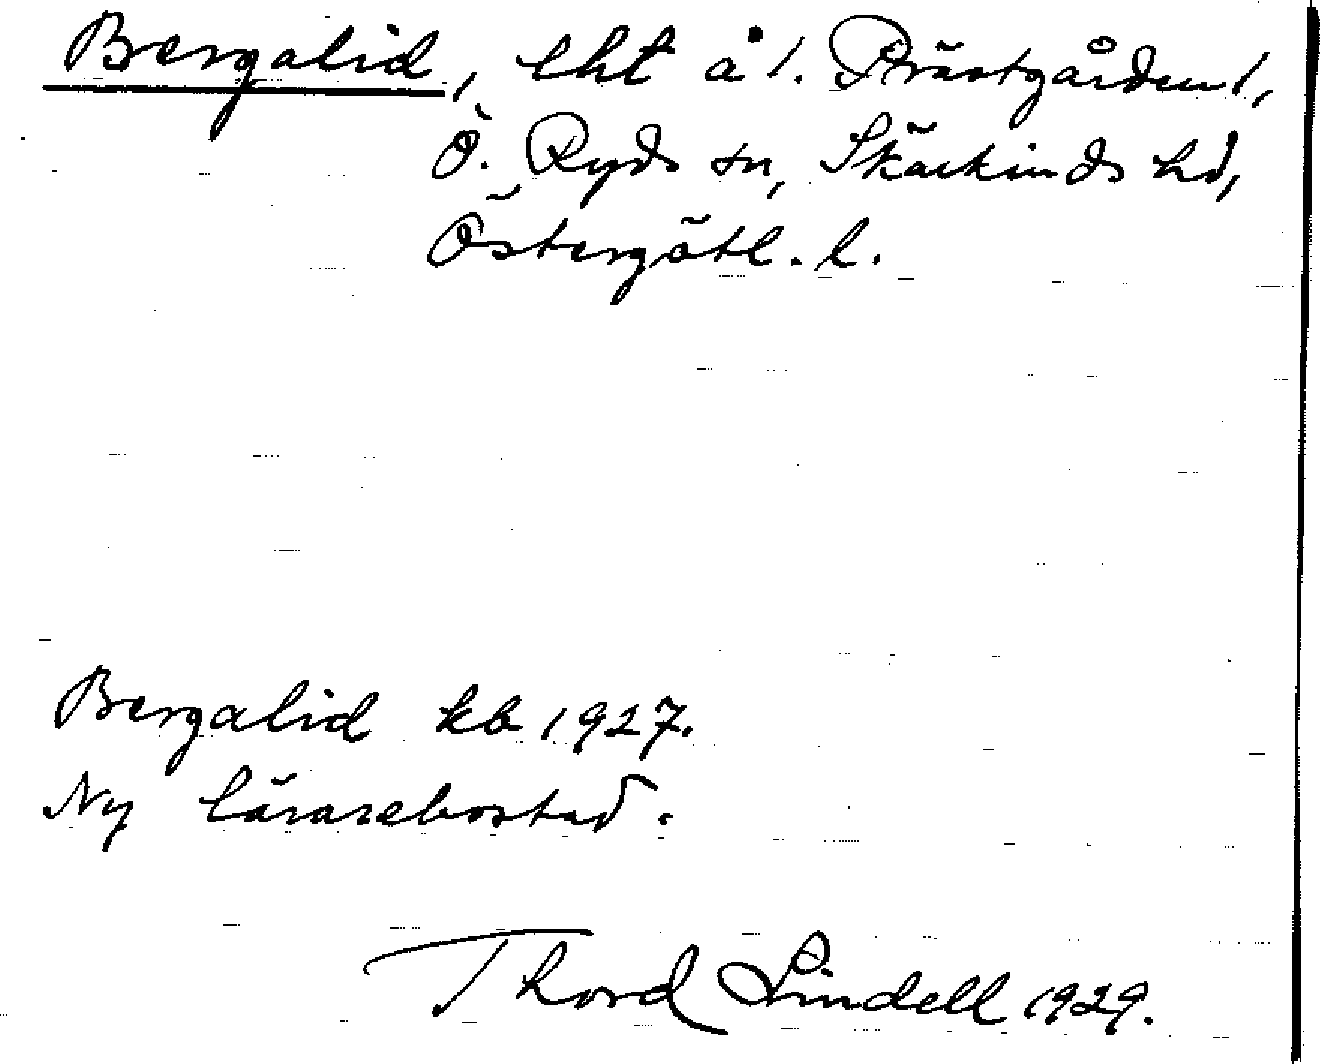 Bergalid, lht å 1. Prästgården 1,
Ö. Ryds sn, Skärkinds hd,
Östergötl. l.
Bergalid kb 1927.
Ny lärarebostad.
Thord Lindell 1929.